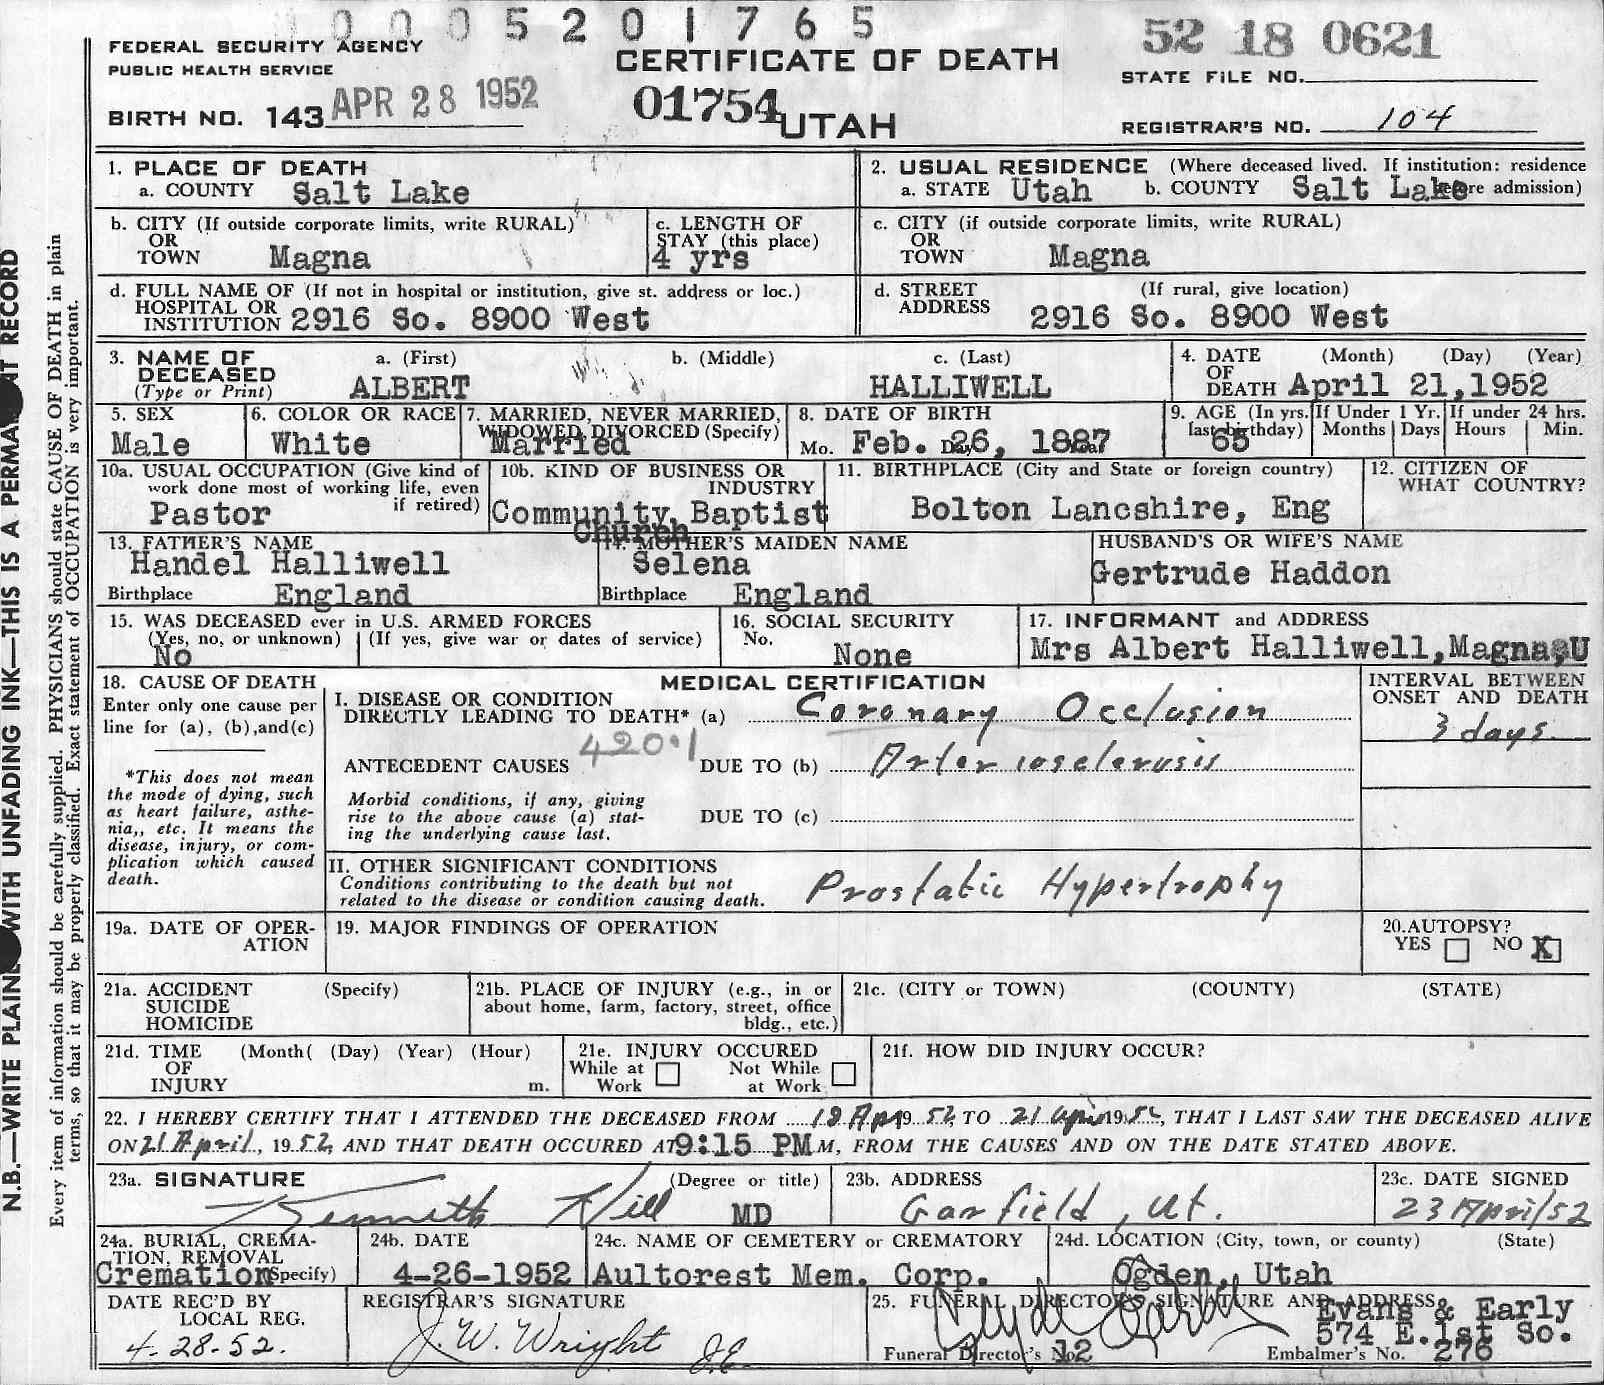 0005201765
52 18 0621
FEDERAL SECURITY AGENCY
PUBLIC HEALTH SERVICE
CERTIFICATE OF DEATH
STATE FILE NO.
BIRTH NO. 143 APR 28 1952
01754 UTAH
REGISTRAR'S NO. 104
1. PLACE OF DEATH
a. COUNTY Salt Lake
2. USUAL RESIDENCE (Where deceased lived. If institution: residence before admission)
a. STATE Utah b. COUNTY Salt Lake
b. CITY (If outside corporate limits, write RURAL)
OR
TOWN Magna
c. LENGTH OF
STAY (this place)
4 yrs
c. CITY (if outside corporate limits, write RURAL)
OR
TOWN Magna
d. FULL NAME OF (If not in hospital or institution, give st. address or loc.)
HOSPITAL OR
INSTITUTION 2916 So. 8900 West
d. STREET (If rural, give location)
ADDRESS 2916 So. 8900 West
3. NAME OF
DECEASED
(Type or Print)
a. (First) b. (Middle) c. (Last)
ALBERT HALLIWELL
4. DATE (Month) (Day) (Year)
OF
DEATH April 21,1952
5. SEX
Male
6. COLOR OR RACE
White
7. MARRIED, NEVER MARRIED,
WIDOWED, DIVORCED (Specify)
Married
8. DATE OF BIRTH
Mo. Feb. Day 26, 1887
9. AGE (In yrs. last birthday)
65
If Under 1 Yr.
Months Days
If under 24 hrs.
Hours Min.
10a. USUAL OCCUPATION (Give kind of
work done most of working life, even
if retired)
Pastor
10b. KIND OF BUSINESS OR
INDUSTRY
Community Baptist
Church
11. BIRTHPLACE (City and State or foreign country)
Bolton Lancshire, Eng
12. CITIZEN OF
WHAT COUNTRY?
13. FATHER'S NAME
Handel Halliwell
Birthplace England
14. MOTHER'S MAIDEN NAME
Selena
Birthplace England
HUSBAND'S OR WIFE'S NAME
Gertrude Haddon
15. WAS DECEASED ever in U.S. ARMED FORCES
(Yes, no, or unknown) (If yes, give war or dates of service)
No
16. SOCIAL SECURITY
No.
None
17. INFORMANT and ADDRESS
Mrs Albert Halliwell,Magna,U
18. CAUSE OF DEATH
Enter only one cause per
line for (a), (b),and(c)
*This does not mean
the mode of dying, such
as heart failure, asthe-
nia,, etc. It means the
disease, injury, or com-
plication which caused
death.
MEDICAL CERTIFICATION
I. DISEASE OR CONDITION
DIRECTLY LEADING TO DEATH* (a) Coronary Occlusion
420.1
ANTECEDENT CAUSES DUE TO (b) Arteriosclerosis
Morbid conditions, if any, giving
rise to the above cause (a) stat-
ing the underlying cause last.
DUE TO (c)
INTERVAL BETWEEN
ONSET AND DEATH
3 days.
II. OTHER SIGNIFICANT CONDITIONS
Conditions contributing to the death but not
related to the disease or condition causing death.
Prostatic Hypertrophy
19a. DATE OF OPER-
ATION
19. MAJOR FINDINGS OF OPERATION
20.AUTOPSY?
YES NO X
21a. ACCIDENT (Specify)
SUICIDE
HOMICIDE
21b. PLACE OF INJURY (e.g., in or
about home, farm, factory, street, office
bldg., etc.)
21c. (CITY or TOWN) (COUNTY) (STATE)
21d. TIME (Month( (Day) (Year) (Hour)
OF
INJURY m.
21e. INJURY OCCURED
While at Not While
Work at Work
21f. HOW DID INJURY OCCUR?
22. I HEREBY CERTIFY THAT I ATTENDED THE DECEASED FROM 18 Apr 1952 TO 21 April 1952, THAT I LAST SAW THE DECEASED ALIVE
ON 21 April, 1952, AND THAT DEATH OCCURED AT 9:15 PM M, FROM THE CAUSES AND ON THE DATE STATED ABOVE.
23a. SIGNATURE (Degree or title)
Kenneth Hill MD
23b. ADDRESS
Garfield, Ut.
23c. DATE SIGNED
23 April/52
24a. BURIAL, CREMA-
TION, REMOVAL
(Specify)
Cremation
24b. DATE
4-26-1952
24c. NAME OF CEMETERY or CREMATORY
Aultorest Mem. Corp.
24d. LOCATION (City, town, or county) (State)
Ogden, Utah
DATE REC'D BY
LOCAL REG.
4-28-52.
REGISTRAR'S SIGNATURE
J. W. Wright
J.E.
25. FUNERAL DIRECTOR'S SIGNATURE AND ADDRESS
Evans & Early
574 E.1st So.
Funeral Director's No. 12
Embalmer's No. 276
N.B.—WRITE PLAINLY WITH UNFADING INK—THIS IS A PERMANENT RECORD
Every item of information should be carefully supplied. PHYSICIANS should state CAUSE OF DEATH in plain
terms, so that it may be properly classified. Exact statement of OCCUPATION is very important.